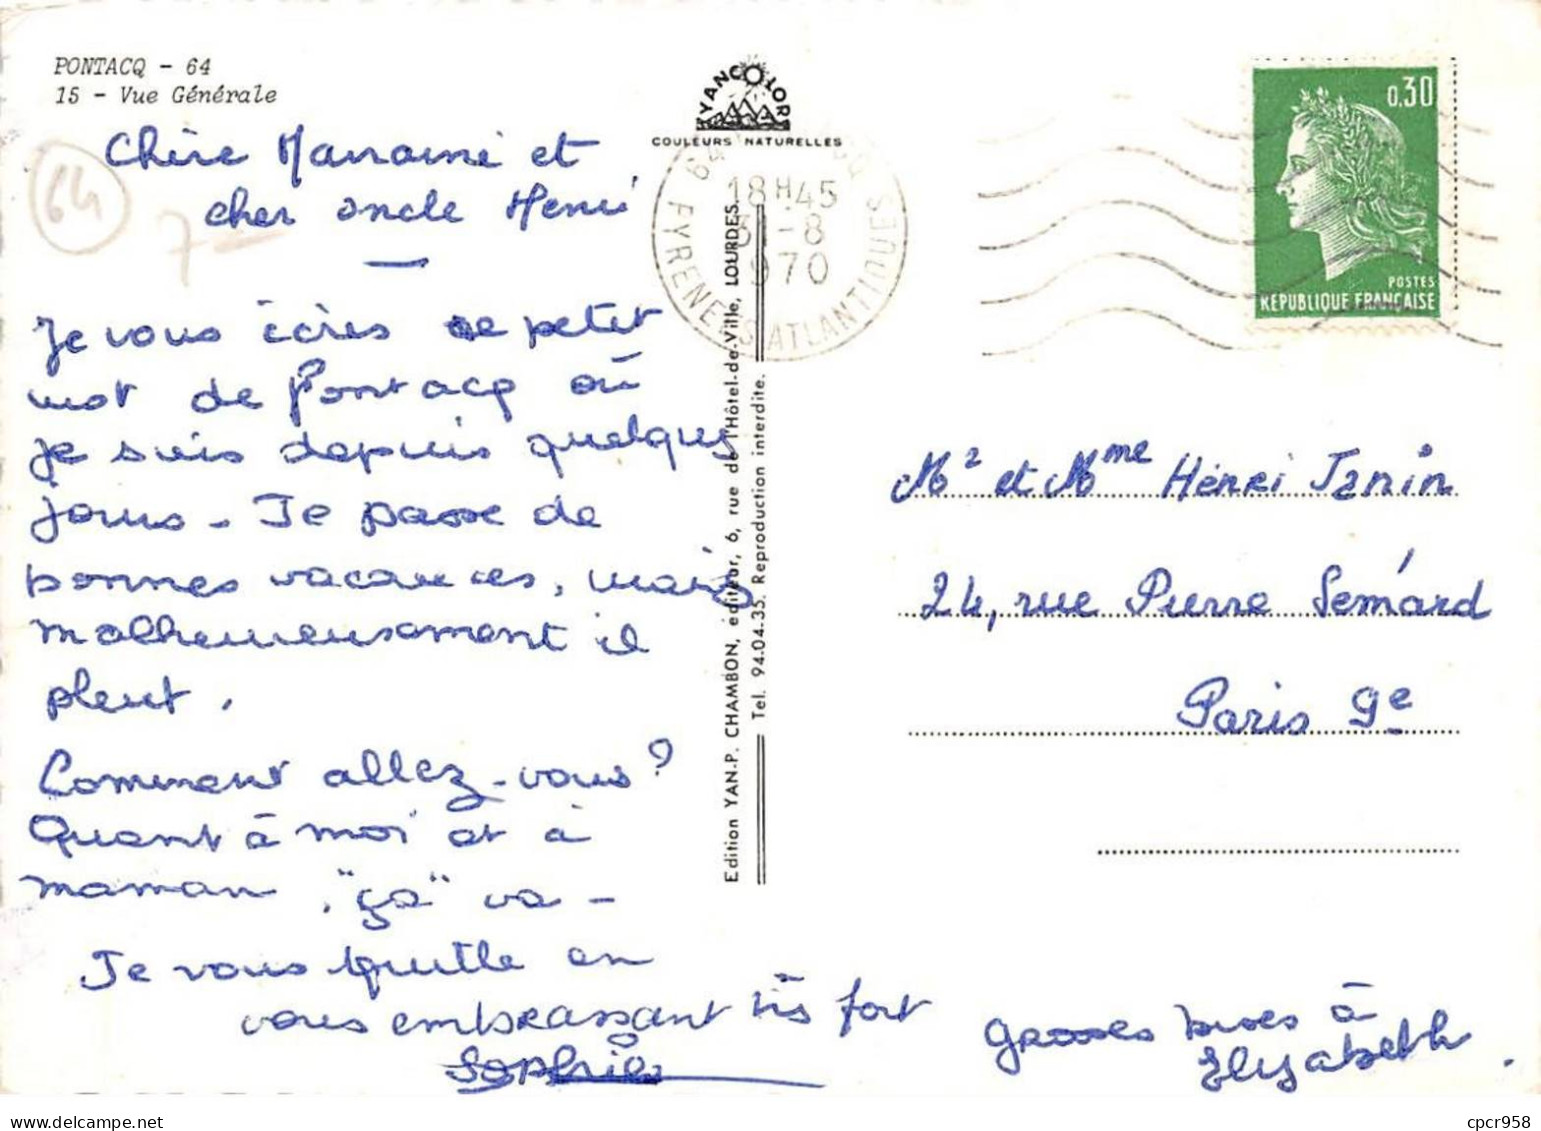 PONTACQ - 64
15 - Vue Générale
YANCOLOR
COULEURS NATURELLES
64
7
Chère Marraine et
cher oncle Henri
Je vous écris ce petit
mot de Pontacq où
je suis depuis quelques
jours - Je passe de
bonnes vacances, mais
malheureusement il
pleut.
Comment allez-vous?
Quant à moi et à
maman, "ça" va -
Je vous quitte en
vous embrassant très fort
Sophie
Grosses bises à
Elysabeth.
Edition YAN-P. CHAMBON, éditeur, 6, rue de l'Hôtel-de-Ville, LOURDES.
Tel. 94.04.35. Reproduction interdite.
64
18H45
31-8
1970
PYRENEES ATLANTIQUES
0,30
POSTES
REPUBLIQUE FRANÇAISE
Mr et Mme Henri Janin
24, rue Pierre Sémard
Paris 9e
cpcr958